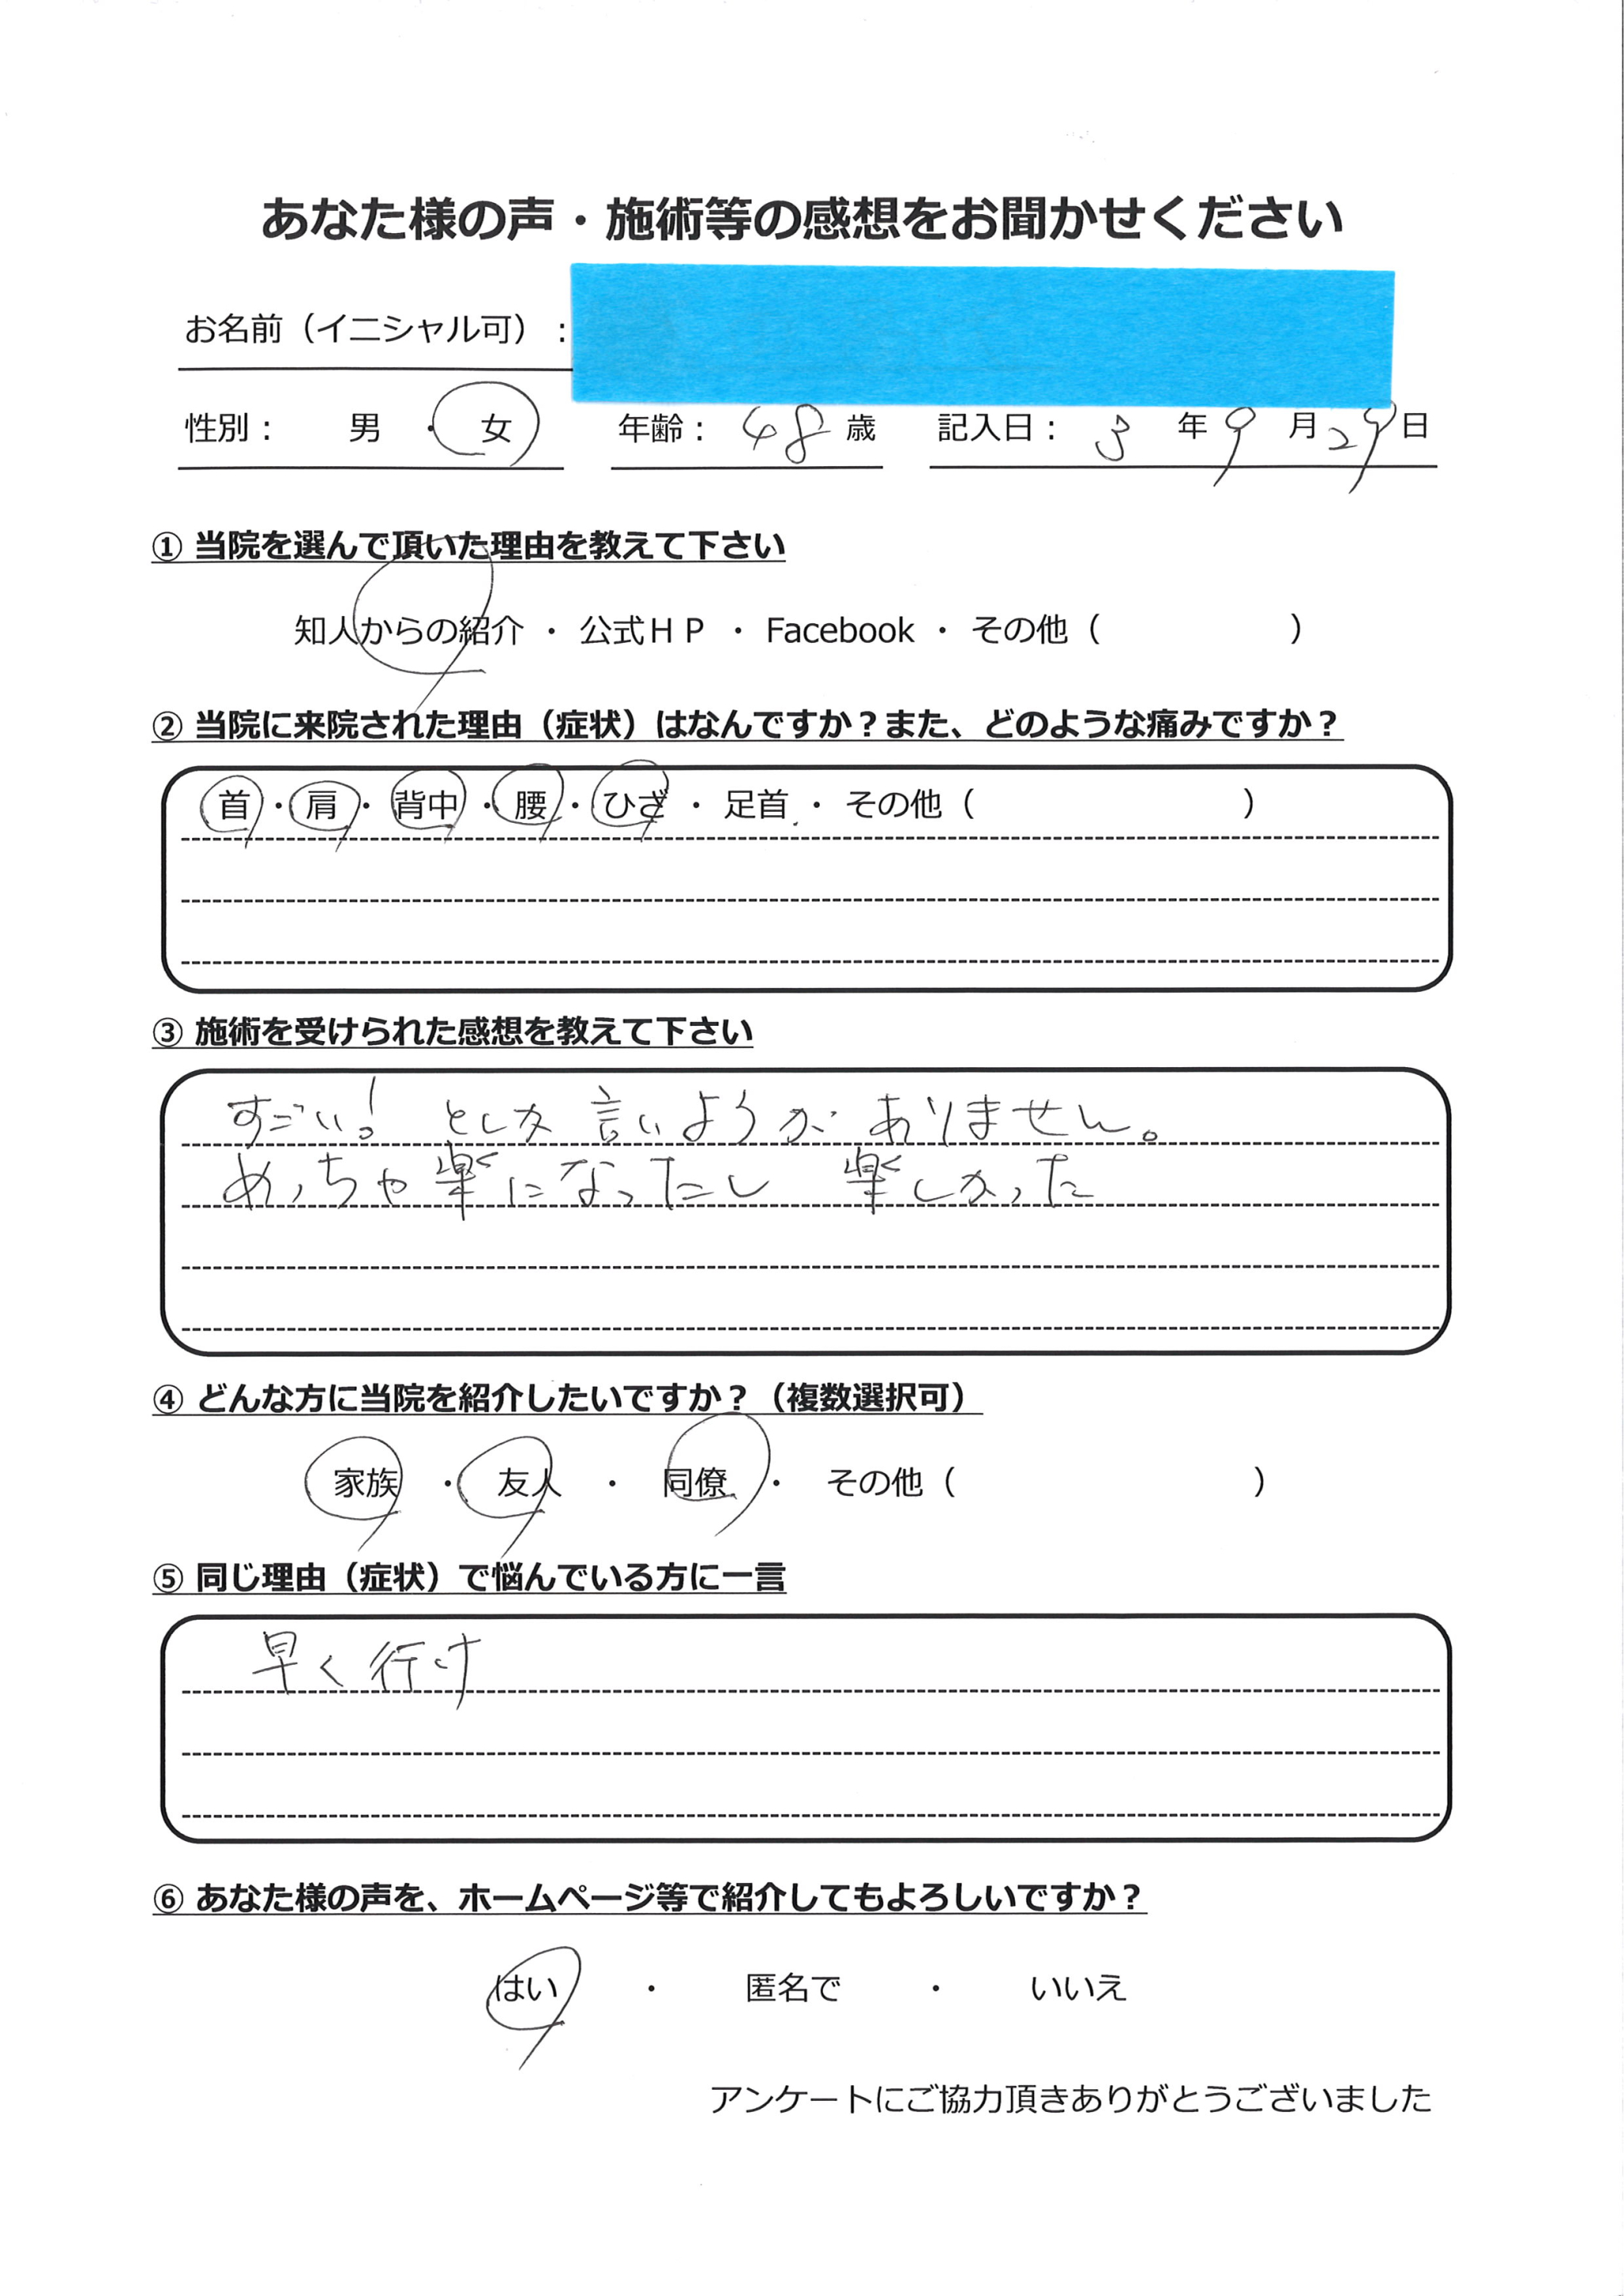 あなた様の声・施術等の感想をお聞かせください
お名前（イニシャル可）：
性別： 男 ・ 女 年齢： 48 歳 記入日： 3 年 9 月 29 日
① 当院を選んで頂いた理由を教えて下さい
知人からの紹介 ・ 公式ＨＰ ・ Facebook ・ その他（ ）
② 当院に来院された理由（症状）はなんですか？また、どのような痛みですか？
首 ・ 肩 ・ 背中 ・ 腰 ・ ひざ ・ 足首 ・ その他（ ）
③ 施術を受けられた感想を教えて下さい
すごい！ としか 言いようが ありません。
めっちゃ楽になったし 楽しかった
④ どんな方に当院を紹介したいですか？（複数選択可）
家族 ・ 友人 ・ 同僚 ・ その他（ ）
⑤ 同じ理由（症状）で悩んでいる方に一言
早く行け
⑥ あなた様の声を、ホームページ等で紹介してもよろしいですか？
はい ・ 匿名で ・ いいえ
アンケートにご協力頂きありがとうございました